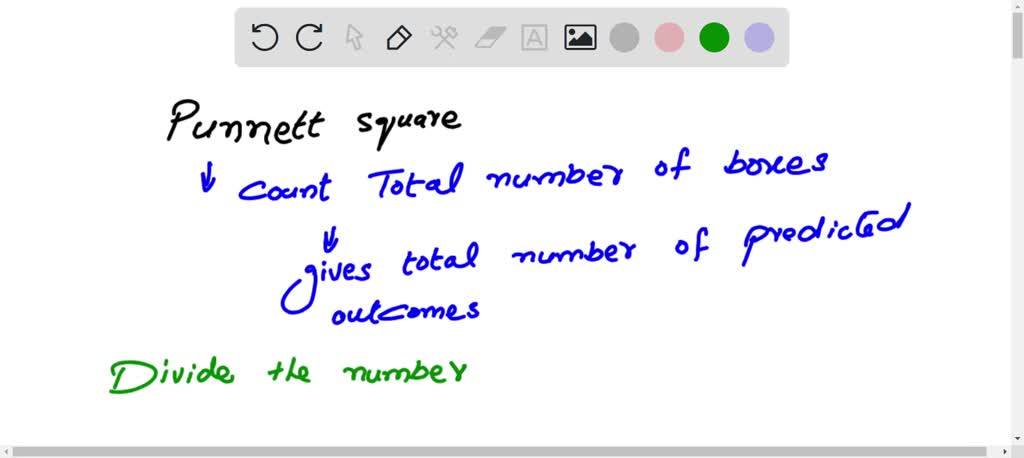 Punnett square
count Total number of boxes
gives total number of predicted
outcomes
Divide the number